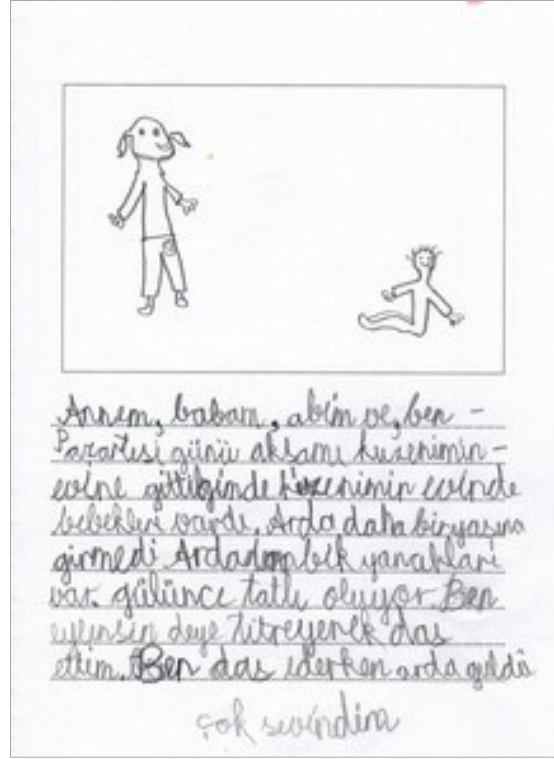 Annem, babam, abim ve, ben -
Pazartesi günü aksamı kuzenimin -
evine gittiginde kuzenimin evinde
bebekleri vardı. Arda daha biryasına
girmedi Ardanın yanakları
var. gülünce tatlı oluyor. Ben
eylensin deye titreyerek das
ettim. Ben das ederken arda güldü
çok sevindim